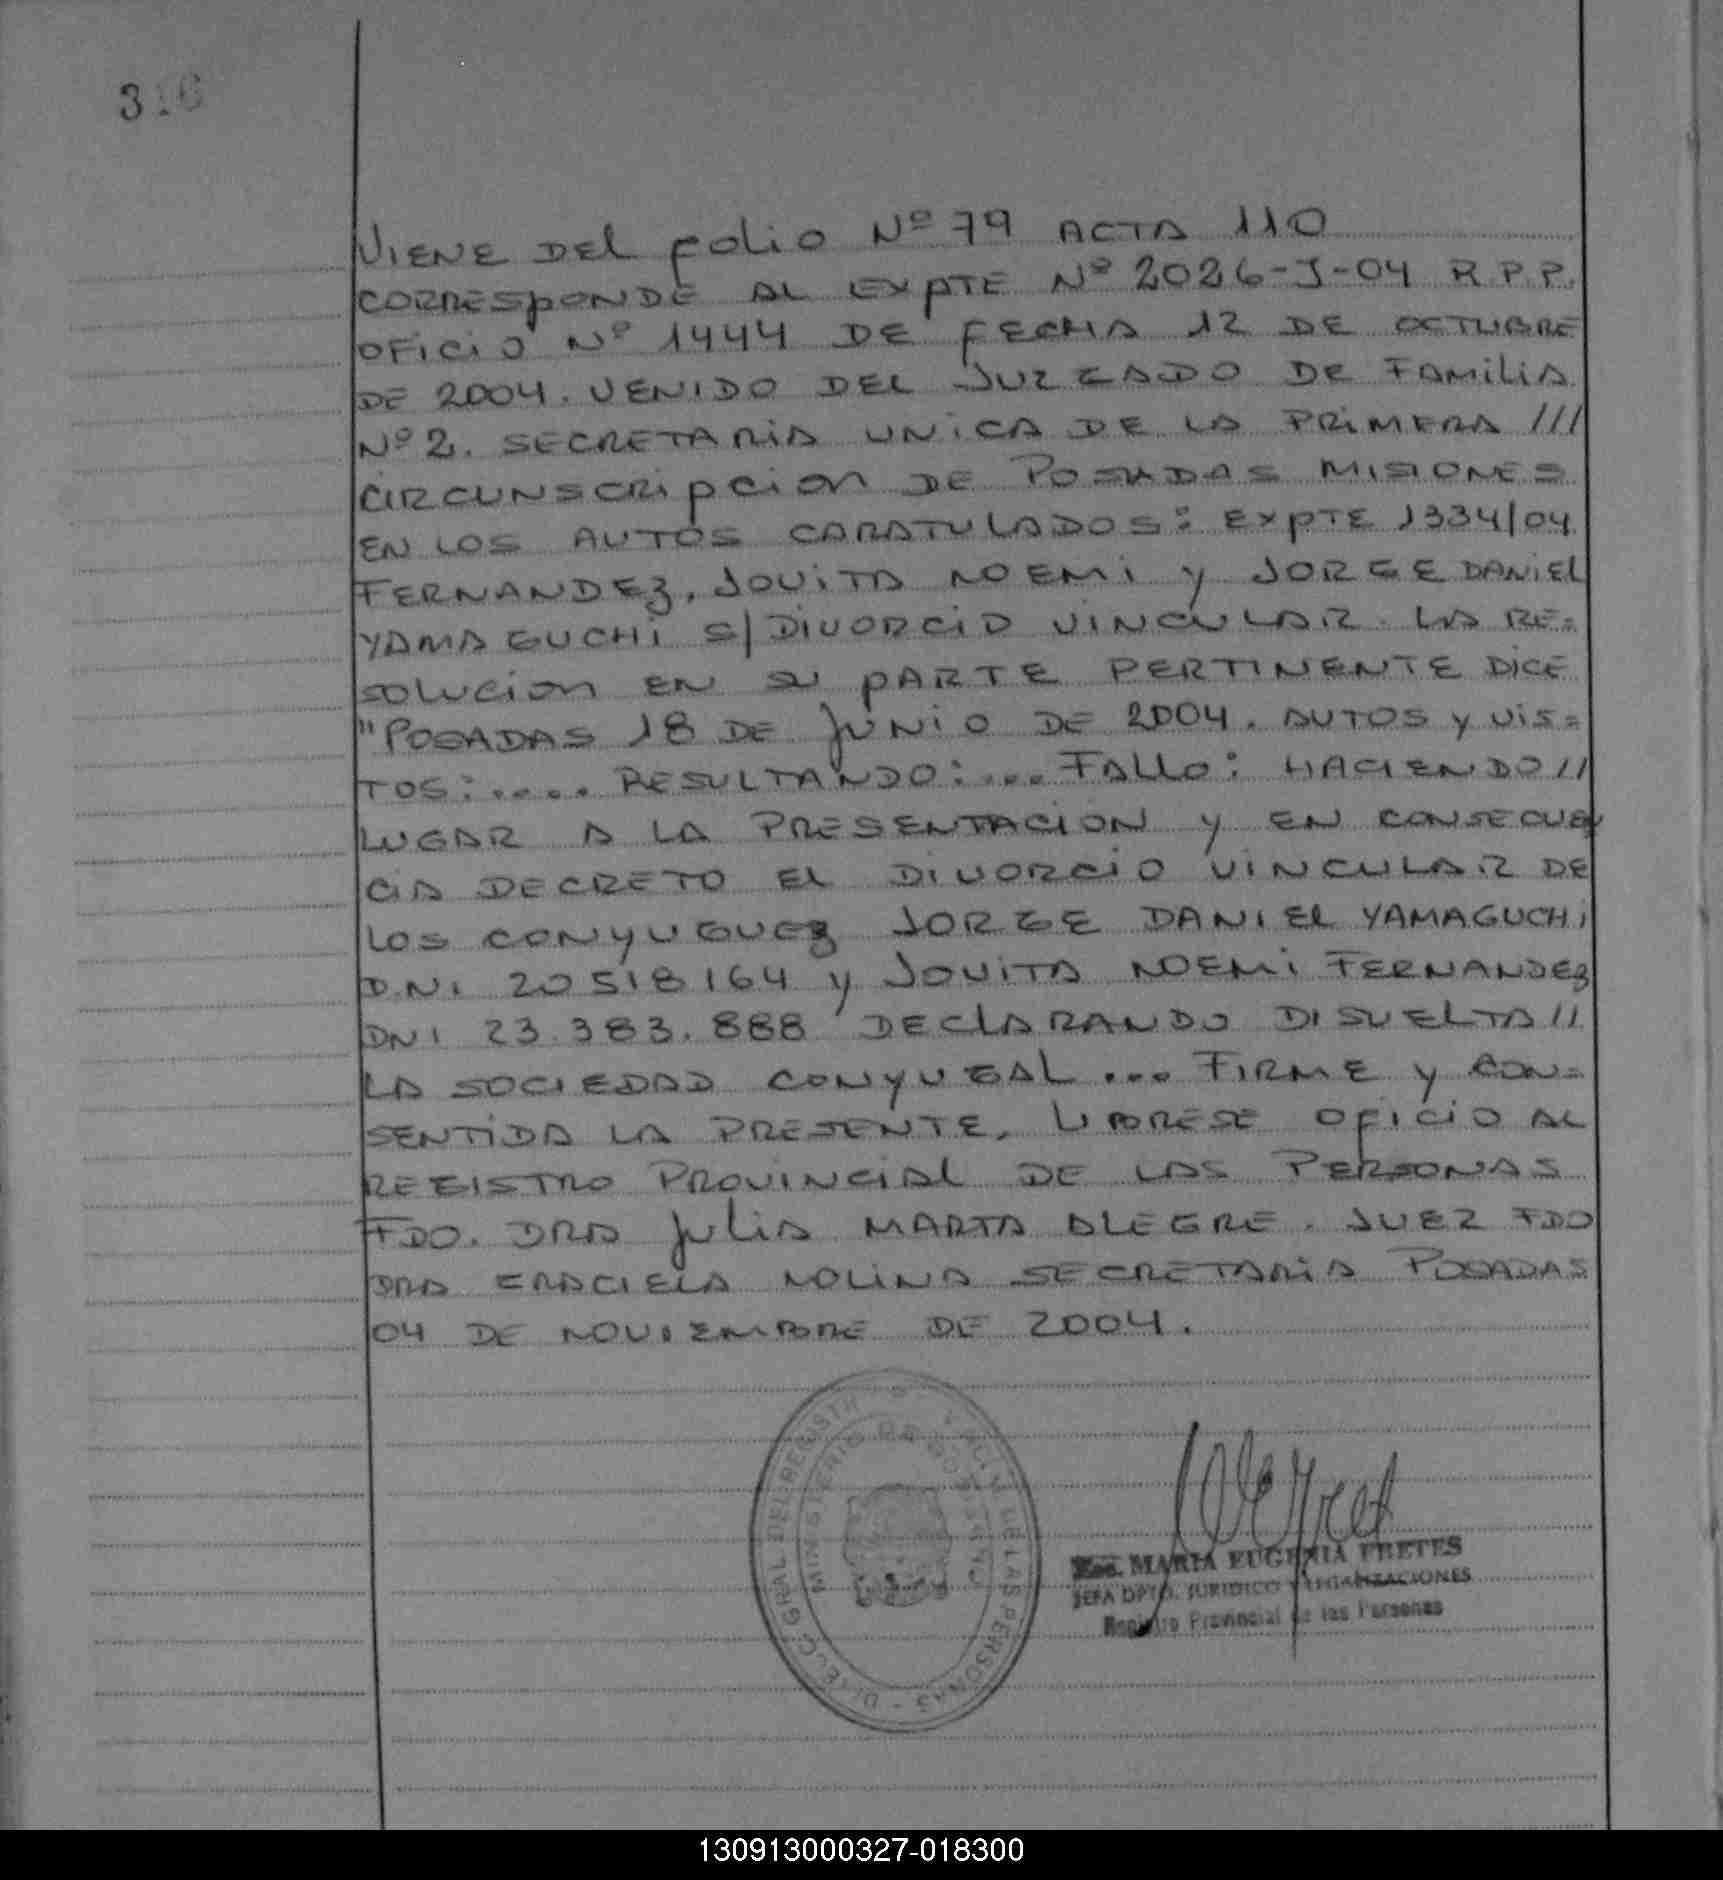 316
VIENE DEL FOLIO Nº 79 ACTA 110
CORRESPONDE AL EXPTE Nº 2026-J-04 R.P.P.
OFICIO Nº 1444 DE FECHA 12 DE OCTUBRE
DE 2004. VENIDO DEL JUZGADO DE FAMILIA
Nº 2. SECRETARIA UNICA DE LA PRIMERA ///
CIRCUNSCRIPCION DE POSADAS MISIONES
EN LOS AUTOS CARATULADOS: EXPTE 1334/04
FERNANDEZ, JOVITA NOEMI Y JORGE DANIEL
YAMAGUCHI S/DIVORCIO VINCULAR. LA RE=
SOLUCION EN SU PARTE PERTINENTE DICE
"POSADAS 18 DE JUNIO DE 2004. AUTOS Y VIS=
TOS:.... RESULTANDO:... FALLO: HACIENDO //
LUGAR A LA PRESENTACION Y EN CONSECUEN
CIA DECRETO EL DIVORCIO VINCULAR DE
LOS CONYUGUEZ JORGE DANIEL YAMAGUCHI
D.NI 20518164 Y JOVITA NOEMI FERNANDEZ
DNI 23.383.888 DECLARANDO DISUELTA //
LA SOCIEDAD CONYUGAL ... FIRME Y CON=
SENTIDA LA PRESENTE, LIBRESE OFICIO AL
REGISTRO PROVINCIAL DE LAS PERSONAS
FDO. DRA JULIA MARTA ALEGRE. JUEZ FDO
DRA GRACIELA MOLINA SECRETARIA POSADAS
04 DE NOVIEMBRE DE 2004.
DIRECC GRAL DEL REGISTR DE LAS PERSONAS
MINISTERIO DE GOBIERNO
MARIA EUGENIA FRETES
JEFA DPTO. JURIDICO Y LEGALIZACIONES
Registro Provincial de las Personas
130913000327-018300